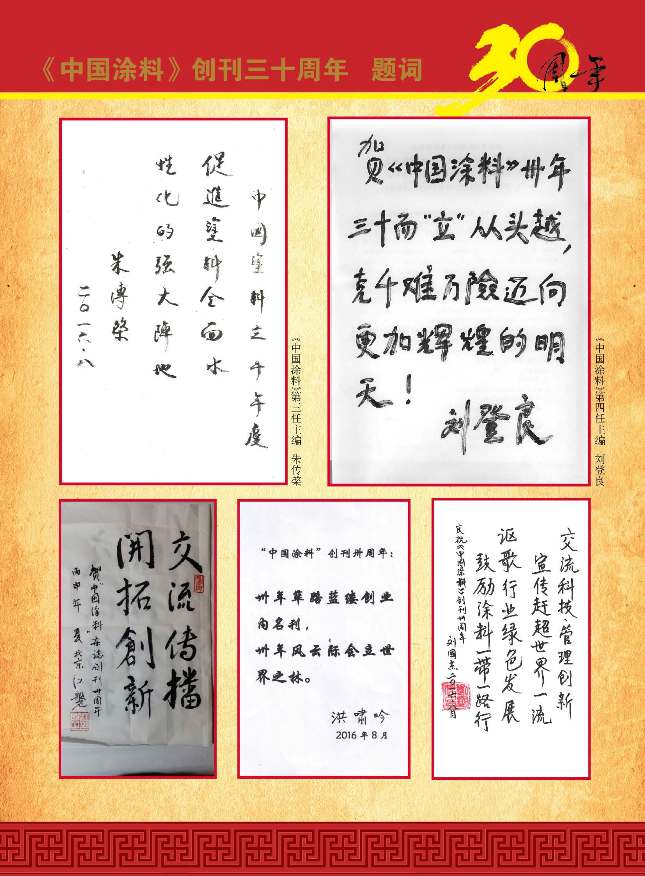 《中国涂料》创刊三十周年 题词
30周年
中国塗料三十年庆
促進塗料全面水
性化的强大陣地
朱傳榮
二〇一六.八
《中国涂料》第三任主编 朱传榮
贺《中国涂料》卅年
三十而“立”从头越,
克千难万險迈向
更加辉煌的明
天!
刘登良
《中国涂料》第四任主编 刘登良
交流传播
開拓創新
賀中國塗料杂誌創刊卅周年
丙申年 夏 北京
“中国涂料”创刊卅周年:
卅年筚路蓝缕创业
内名刊,
卅年风云际会立世
界之林。
洪啸吟
2016年8月
交流科技、管理创新
宣传赶超世界一流
讴歌行业绿色发展
鼓励涂料一带一路行
庆祝《中国涂料》创刊卅周年
刘国杰 二〇一六八月